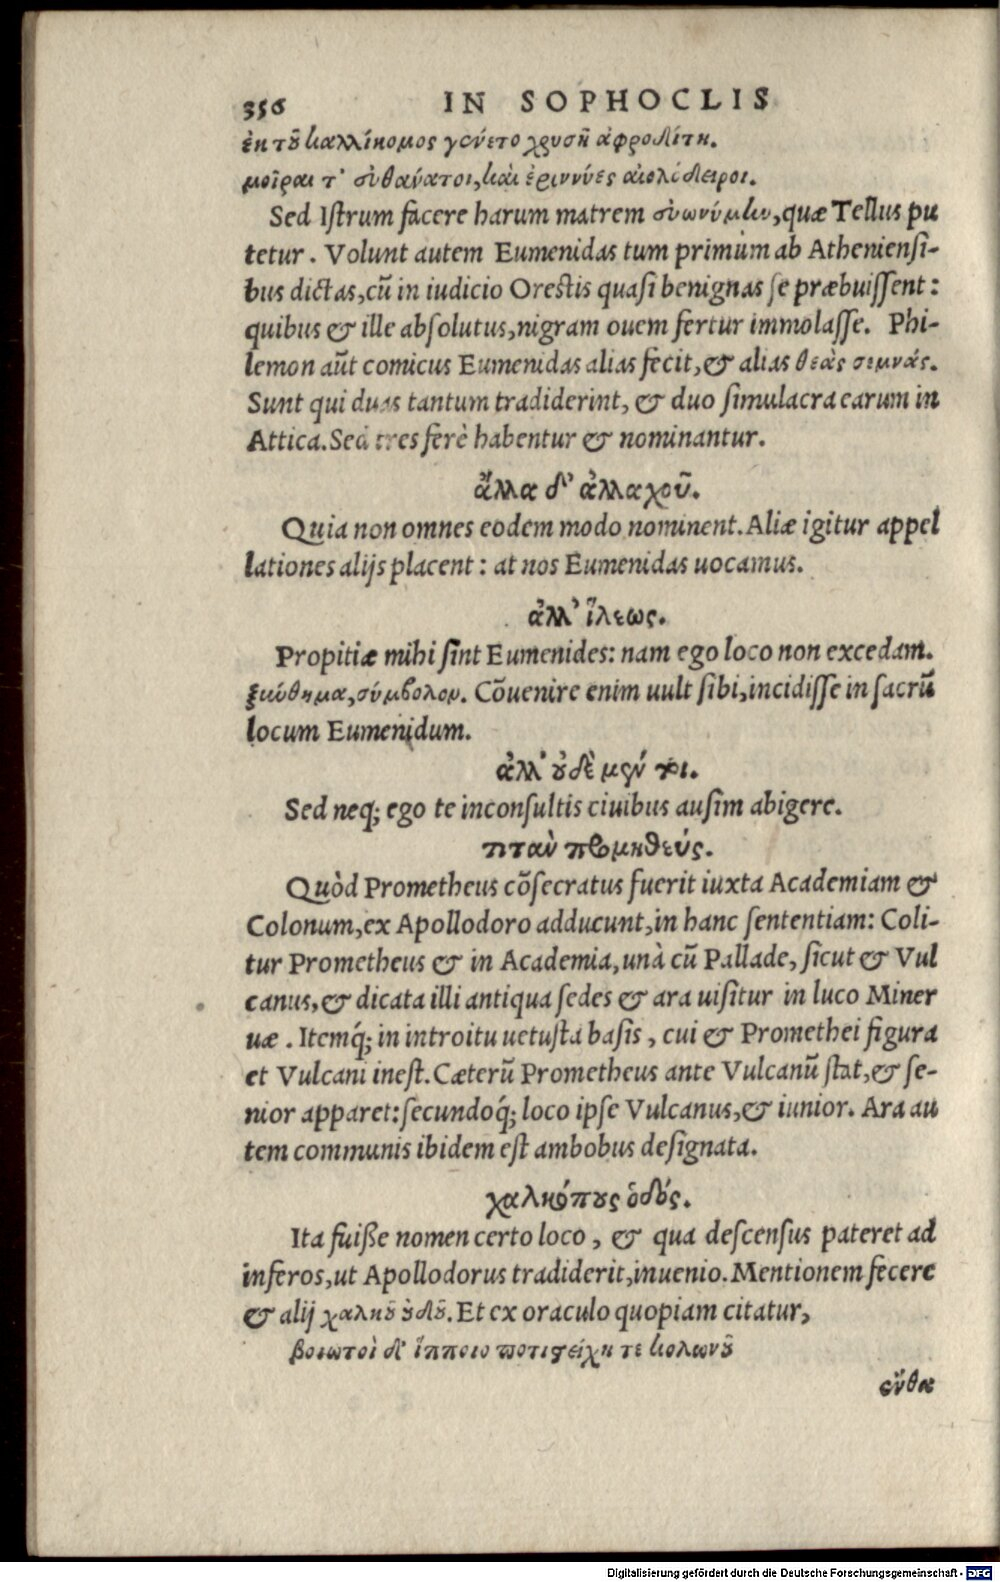 356 IN SOPHOCLIS
ἐκ τοῦ καλλίκομος γένετο χρυσῆ ἀφροδίτη.
μοῖραι τ' ἀθάνατοι, καὶ ἐριννύες αἰολόδειροι.
Sed Iſtrum facere harum matrem εὐωνύμην, quæ Tellus pu
tetur. Volunt autem Eumenidas tum primùm ab Athenienſi-
bus dictas, cū in iudicio Oreſtis quaſi benignas ſe præbuiſſent:
quibus & ille abſolutus, nigram ouem fertur immolaſſe. Phi-
lemon aūt comicus Eumenidas alias fecit, & alias θεὰς σεμνάς.
Sunt qui duas tantum tradiderint, & duo ſimulacra earum in
Attica. Sed tres ferè habentur & nominantur.
ἄλλα δ' ἀλλαχοῦ.
Quia non omnes eodem modo nominent. Aliæ igitur appel
lationes alijs placent: at nos Eumenidas uocamus.
ἀλλ' ἵλεως.
Propitiæ mihi ſint Eumenides: nam ego loco non excedam.
ξύνθημα, σύμβολον. Cōuenire enim uult ſibi, incidiſſe in ſacrū
locum Eumenidum.
ἀλλ' οὐδὲ μέν τοι.
Sed neq; ego te inconſultis ciuibus auſim abigere.
τιτὰν προμηθεύς.
Quòd Prometheus cōſecratus fuerit iuxta Academiam &
Colonum, ex Apollodoro adducunt, in hanc ſententiam: Coli-
tur Prometheus & in Academia, unà cū Pallade, ſicut & Vul
canus, & dicata illi antiqua ſedes & ara uiſitur in luco Miner
uæ. Itemq́; in introitu uetuſta baſis, cui & Promethei figura
et Vulcani ineſt. Cæterū Prometheus ante Vulcanū ſtat, & ſe-
nior apparet: ſecundoq́; loco ipſe Vulcanus, & iunior. Ara au
tem communis ibidem eſt ambobus deſignata.
χαλκόπους ὁδός.
Ita fuiße nomen certo loco, & qua deſcenſus pateret ad
inferos, ut Apollodorus tradiderit, inuenio. Mentionem fecere
& alij χαλκοῦ ὀδοῦ. Et ex oraculo quopiam citatur,
βοιωτοὶ δ' ἵπποιο ποτιστείχη τε κολωνοῦ
ἔνθα
Digitalisierung gefördert durch die Deutsche Forschungsgemeinschaft - DFG